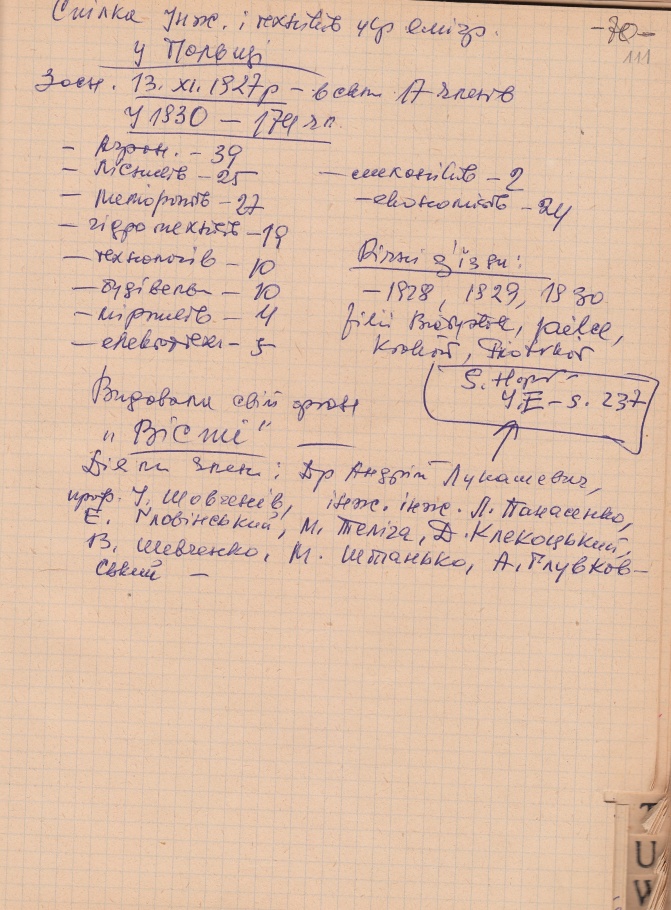 Спілка Інж. і техніків укр еміґр.
-70-
111
у Польщі
Засн. 13. XI. 1927р - всего 17 членів
У 1930 - 174 чл.
- Агрон. - 39
- лісників - 25
- меліоратів - 27
- гідротехніків - 19
- технологів - 10
- будівельн - 10
- гірників - 4
- електротехн - 5
- механіків - 2
- економістів - 24
Річні з'їзди:
- 1928, 1929, 1930
філії Białystok, Kielce,
Kraków, Piotrków
S. Нар
У.Е - s. 237
Видавали свій орган
„Вісті"
Діячі члени: Др Андрій Лукашевич,
проф. І. Шовгенів, інж. інж. Л. Панасенко,
Е. Гловінський, М. Теліга, Д. Клекоцький,
В. Шевченко, М. Штанько, А. Глувков-
ський -
T
U
W